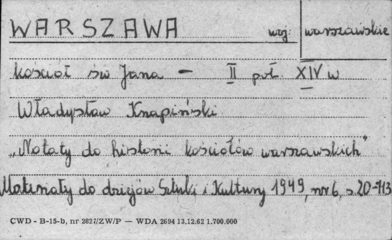 WARSZAWA woj. warszawskie
kościół św Jana – II poł XIV w
Władysław Knapiński
„Notaty do historii kościołów warszawskich"
Materiały do dziejów Sztuki i Kultury 1949, nr 6, s. 20-113
CWD - B-15-b, nr 2827/ZW/P — WDA 2694 13.12.62 1.700.000